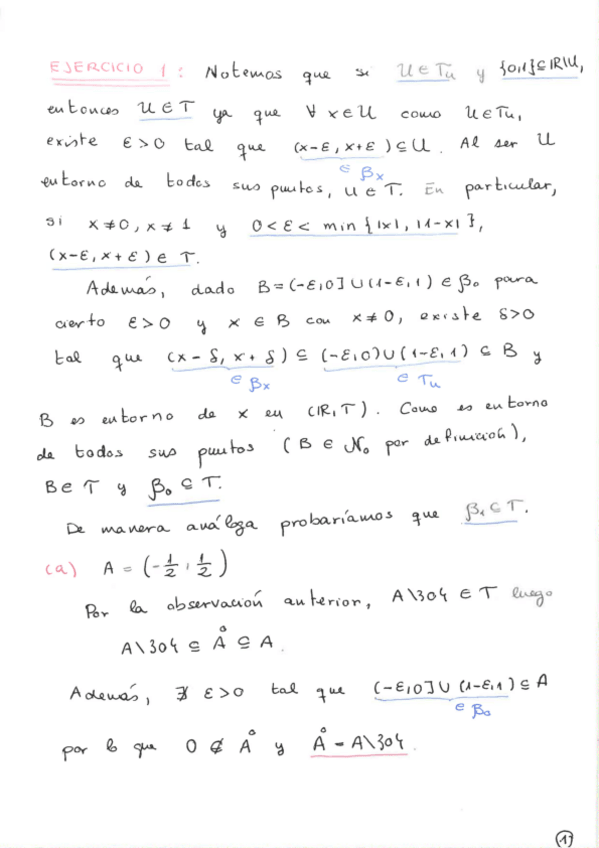 EJERCICIO 1: Notemos que si U ∈ Tu y {0,1} ⊆ ℝ\U,
entonces U ∈ T ya que ∀ x ∈ U como U ∈ Tu,
existe ε > 0 tal que (x-ε, x+ε) ⊆ U. Al ser U
∈ βx
entorno de todos sus puntos, U ∈ T. En particular,
si x ≠ 0, x ≠ 1 y 0 < ε < min {|x|, |1-x|},
(x-ε, x+ε) ∈ T.
Además, dado B = (-ε,0] ∪ (1-ε,1) ∈ β₀ para
cierto ε > 0 y x ∈ B con x ≠ 0, existe δ > 0
tal que (x - δ, x + δ) ⊆ (-ε,0) ∪ (1-ε,1) ⊆ B y
∈ βx ∈ Tu
B es entorno de x en (ℝ,T). Como es entorno
de todos sus puntos (B ∈ N₀ por definición),
B ∈ T y β₀ ⊆ T.
De manera análoga probaríamos que β₁ ⊆ T.
(a) A = (-1/2, 1/2)
Por la observación anterior, A\{0} ∈ T luego
A\{0} ⊆ Å ⊆ A.
Además, ∄ ε > 0 tal que (-ε,0] ∪ (1-ε,1) ⊆ A
∈ β₀
por lo que 0 ∉ Å y Å = A\{0}.
1